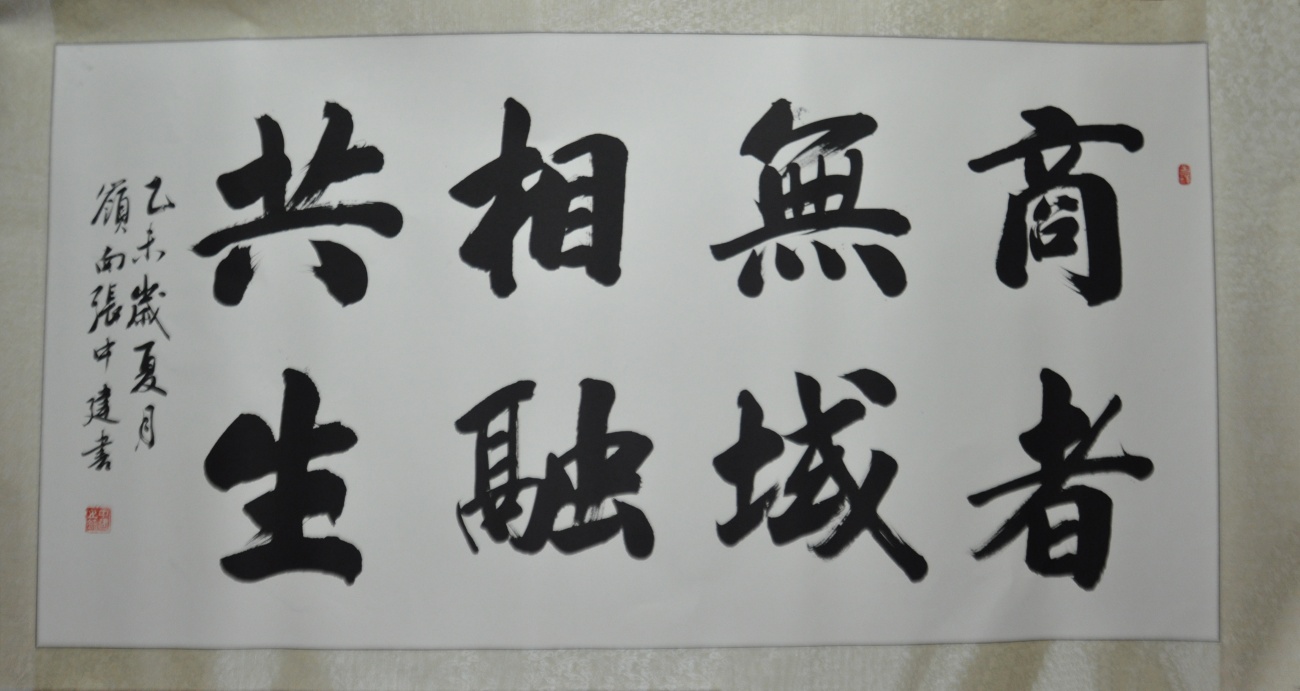 商者
無域
相融
共生
乙未歲夏月
嶺南張中建書